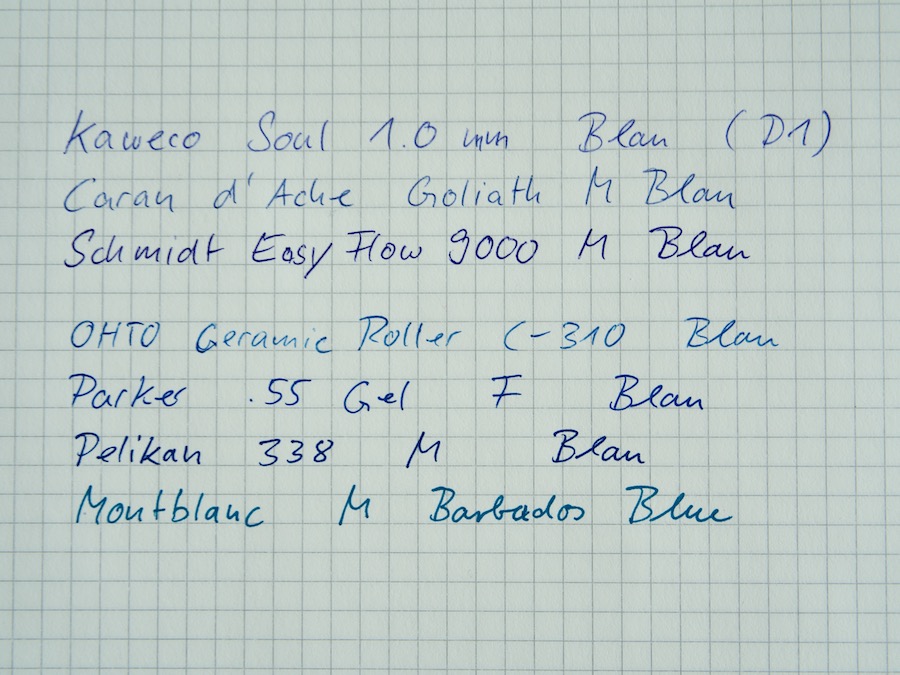 Kaweco Soul 1.0 mm Blau (D1)
Caran d'Ache Goliath M Blau
Schmidt Easy Flow 9000 M Blau
OHTO Ceramic Roller C-310 Blau
Parker .55 Gel F Blau
Pelikan 338 M Blau
Montblanc M Barbados Blue